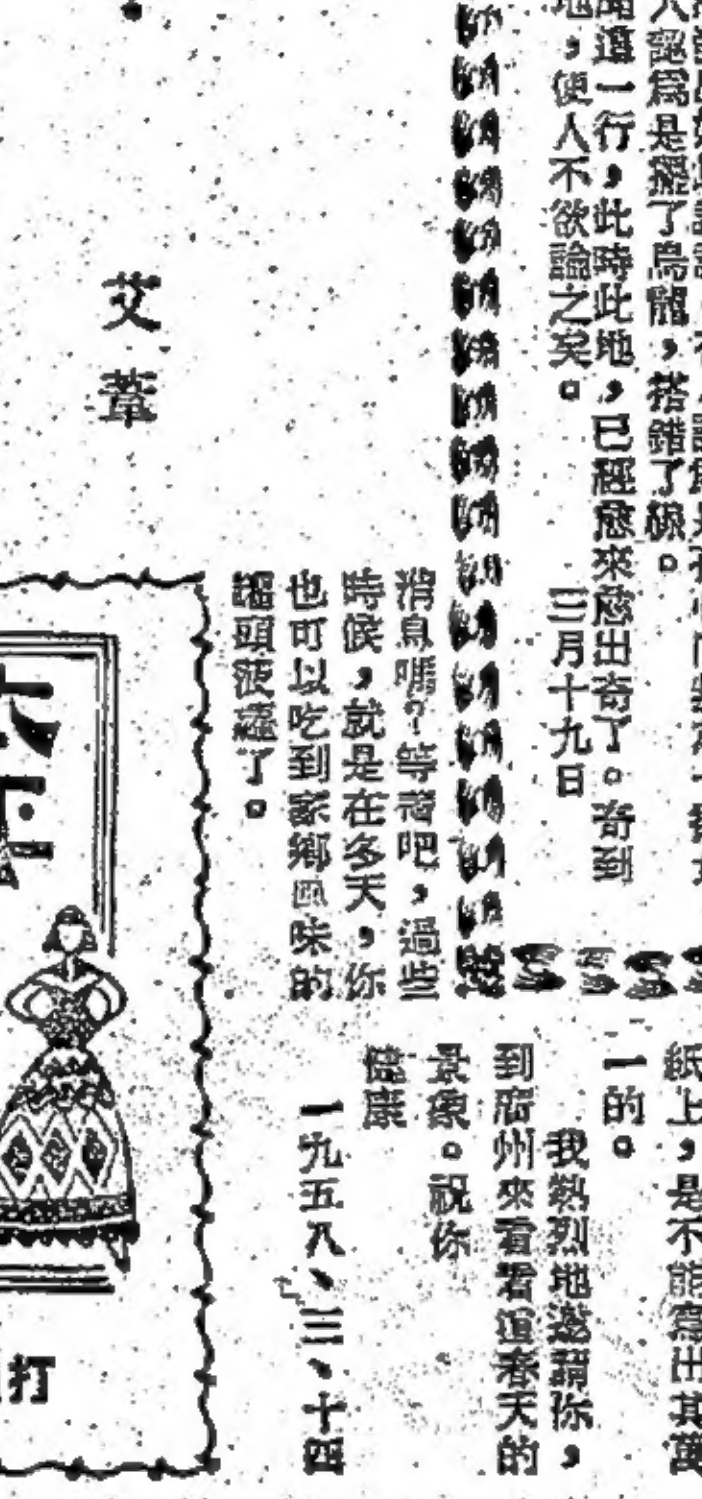 人認爲是擺了烏龍，搭錯了線。
聞這一行，此時此地，已經愈來愈出奇了。奇到
地，使人不欲論之矣。
三月十九日
艾葦
消息嗎？等着吧，過些
時候，就是在冬天，你
也可以吃到家鄉風味的
罐頭菠蘿了。
紙上，是不能寫出其萬
一的。
我熱烈地邀請你，
到廣州來看看這春天的
景象。祝你
健康
一九五八、三、十四
打